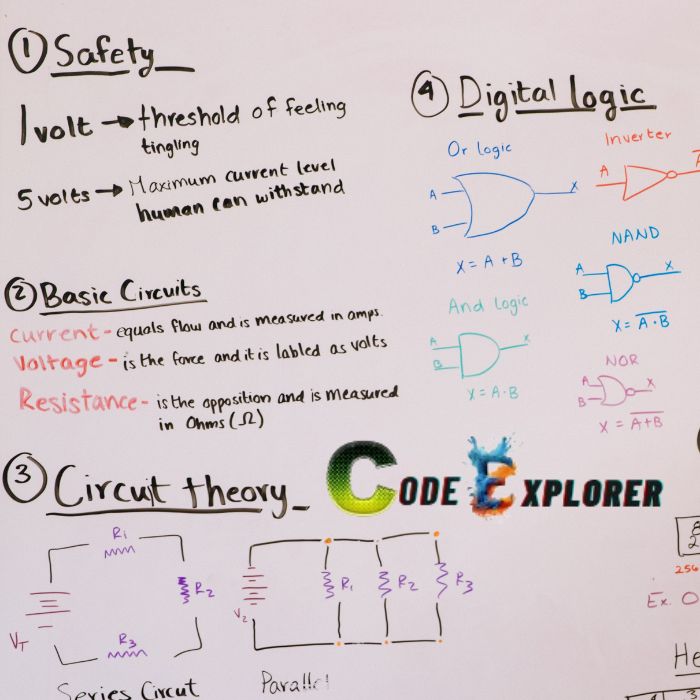 ① Safety
1 volt → threshold of feeling
tingling
5 volts → Maximum current level
human can withstand
② Basic Circuits
Current - equals flow and is measured in amps.
Voltage - is the force and it is labled as volts
Resistance - is the opposition and is measured
in Ohms (Ω)
③ Circut theory
R₁
R₂
R₃
V_T
Series Circut
V₂
R₁
R₂
R₃
Parallel
④ Digital logic
Or logic
A
B
X
X = A + B
Inverter
A
A̅
NAND
A
B
X
X = \overline{A · B}
And logic
A
B
X
X = A · B
NOR
A
B
X
X = \overline{A + B}
CODE EXPLORER
8
2
256
Ex. O
He